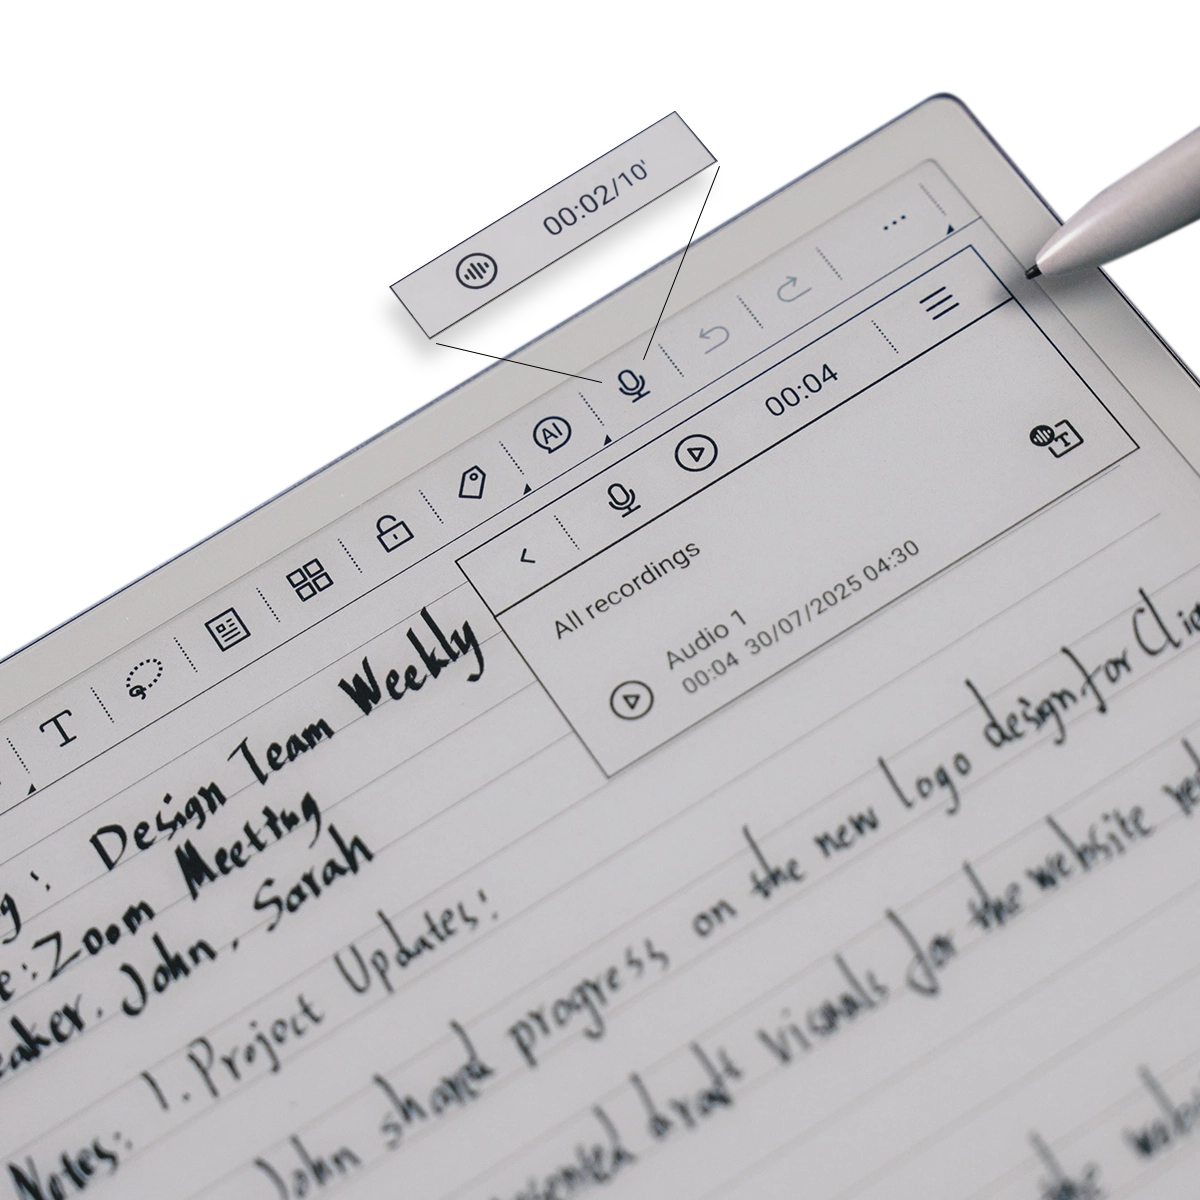 00:02/10'
AI
00:04
All recordings
Audio 1
00:04 30/07/2025 04:30
T
Design Team Weekly
Zoom Meeting
John, Sarah
Notes: 1. Project Updates:
John shared progress on the new logo design for
draft visuals for the website
the